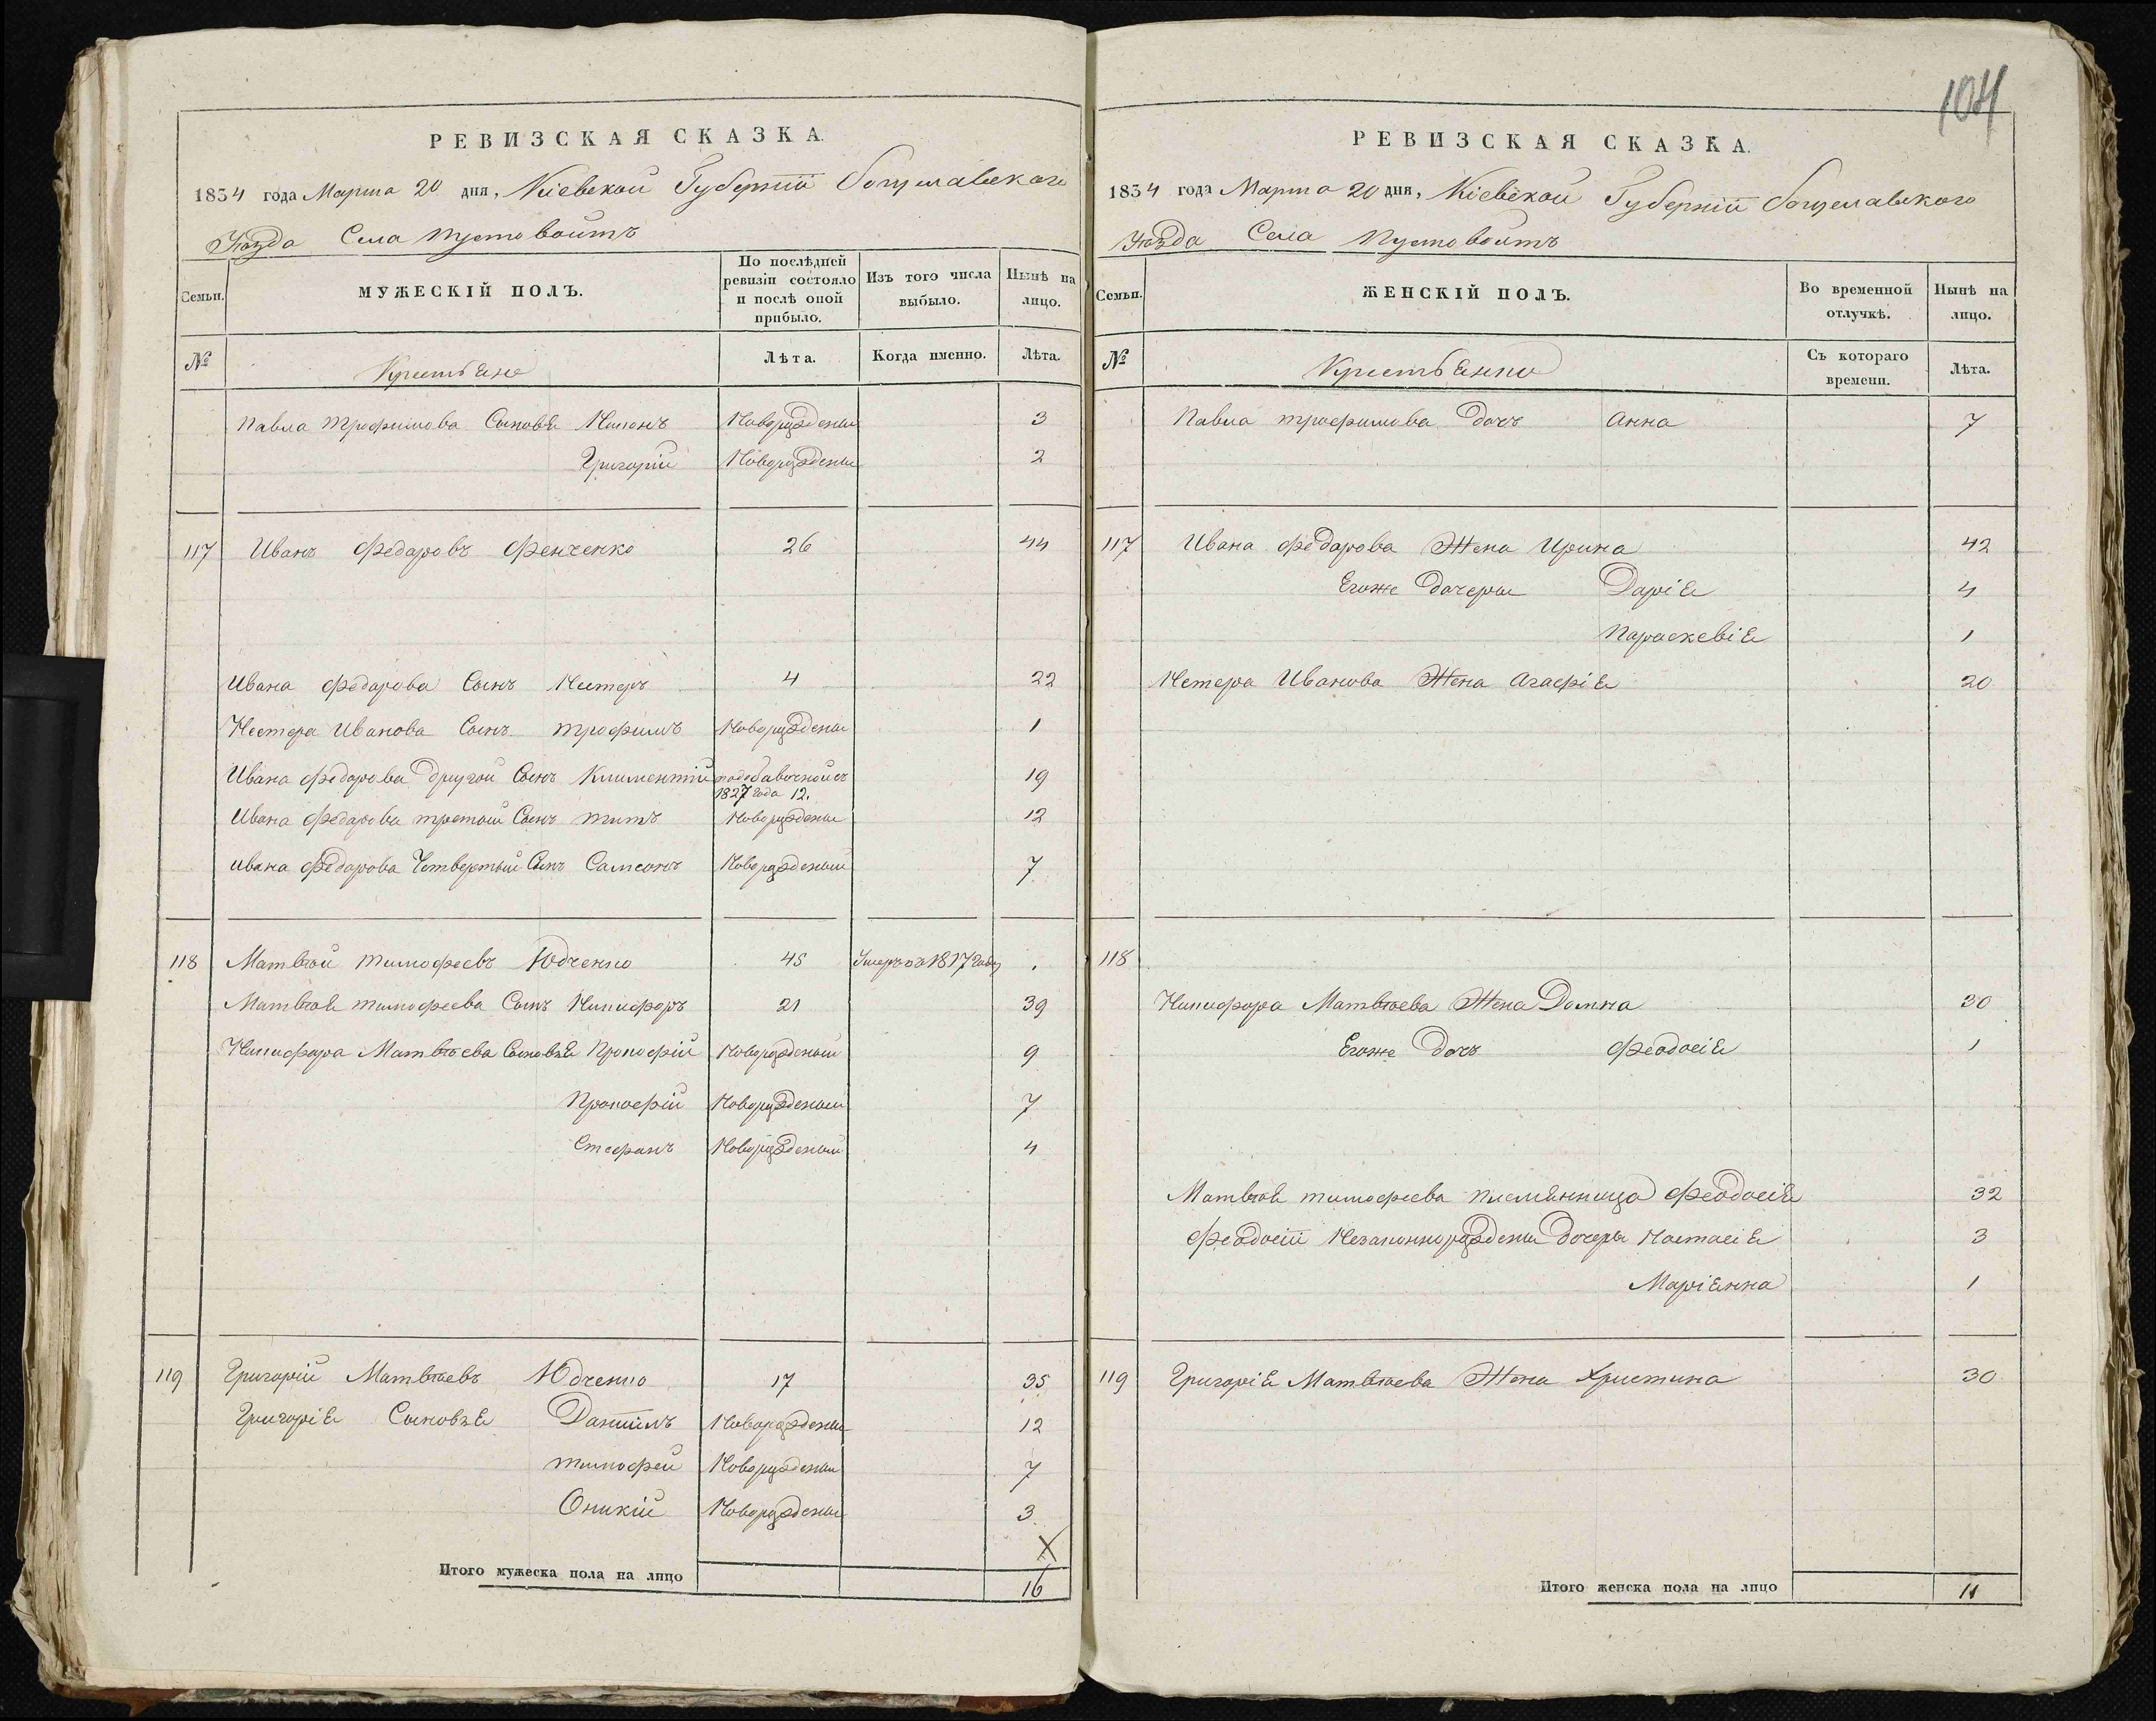 104
РЕВИЗСКАЯ СКАЗКА.
1834 года Марта 20 дня, Кіевской Губерніи Богуславскаго
Уѣзда Села Пустовоитъ
Семьи. МУЖЕСКІЙ ПОЛЪ. По послѣдней ревизіи состояло и послѣ оной прибыло. Изъ того числа выбыло. Нынѣ на лицо.
№ Крестьяне Лѣта. Когда именно. Лѣта.
Павла Трофимова Сыновя Никонъ Новорожденны 3
Григорій Новорожденны 2
117 Иванъ Федаровъ Фенченко 26 44
Ивана Федарова Сынъ Нестеръ 4 22
Нестера Иванова Сынъ Трофимъ Новорожденны 1
Ивана Федарова другой Сынъ Климентій 19
1827 года 12.
Ивана Федарова третьій Сынъ Титъ Новорожденны 12
Ивана Федарова Четвертый Сынъ Самсонъ Новорожденный 7
118 Матвѣй Тимофеевъ Юдченко 45 Умеръ въ 1817 году .
Матвѣя Тимофеева Сынъ Никифоръ 21 39
Никифора Матвѣева Сыновья Прокофій Новорожденный 9
Прокофій Новорожденный 7
Стефанъ Новорожденный 4
119 Григорій Матвѣевъ Юдченко 17 35
Григорія Сыновъя Даніилъ Новорожденны 12
Тимофей Новорожденны 7
Оникій Новорожденны 3
Итого мужеска пола на лицо 16
РЕВИЗСКАЯ СКАЗКА.
1834 года Марта 20 дня, Кіевской Губерніи Богуславскаго
Уѣзда Села Пустовоитъ
Семьи. ЖЕНСКІЙ ПОЛЪ. Во временной отлучкѣ. Нынѣ на лицо.
№ Крестьянки Съ котораго времени. Лѣта.
Павла Трофимова Дочъ Анна 7
117 Ивана Федарова Жена Ирина 42
Егоже Дочеры Дарія 4
Параскевія 1
Нетера Иванова Жена Агафія 20
118
Никифора Матвѣева Жена Домна 30
Егоже Дочъ Феодосія 1
Матвѣя Тимофеева племянница Феодосія 32
Феодосіи Незаконнорожденны Дочеры Настасія 3
Маріянна 1
119 Григорія Матвѣева Жена Христина 30
Итого женска пола на лицо 11